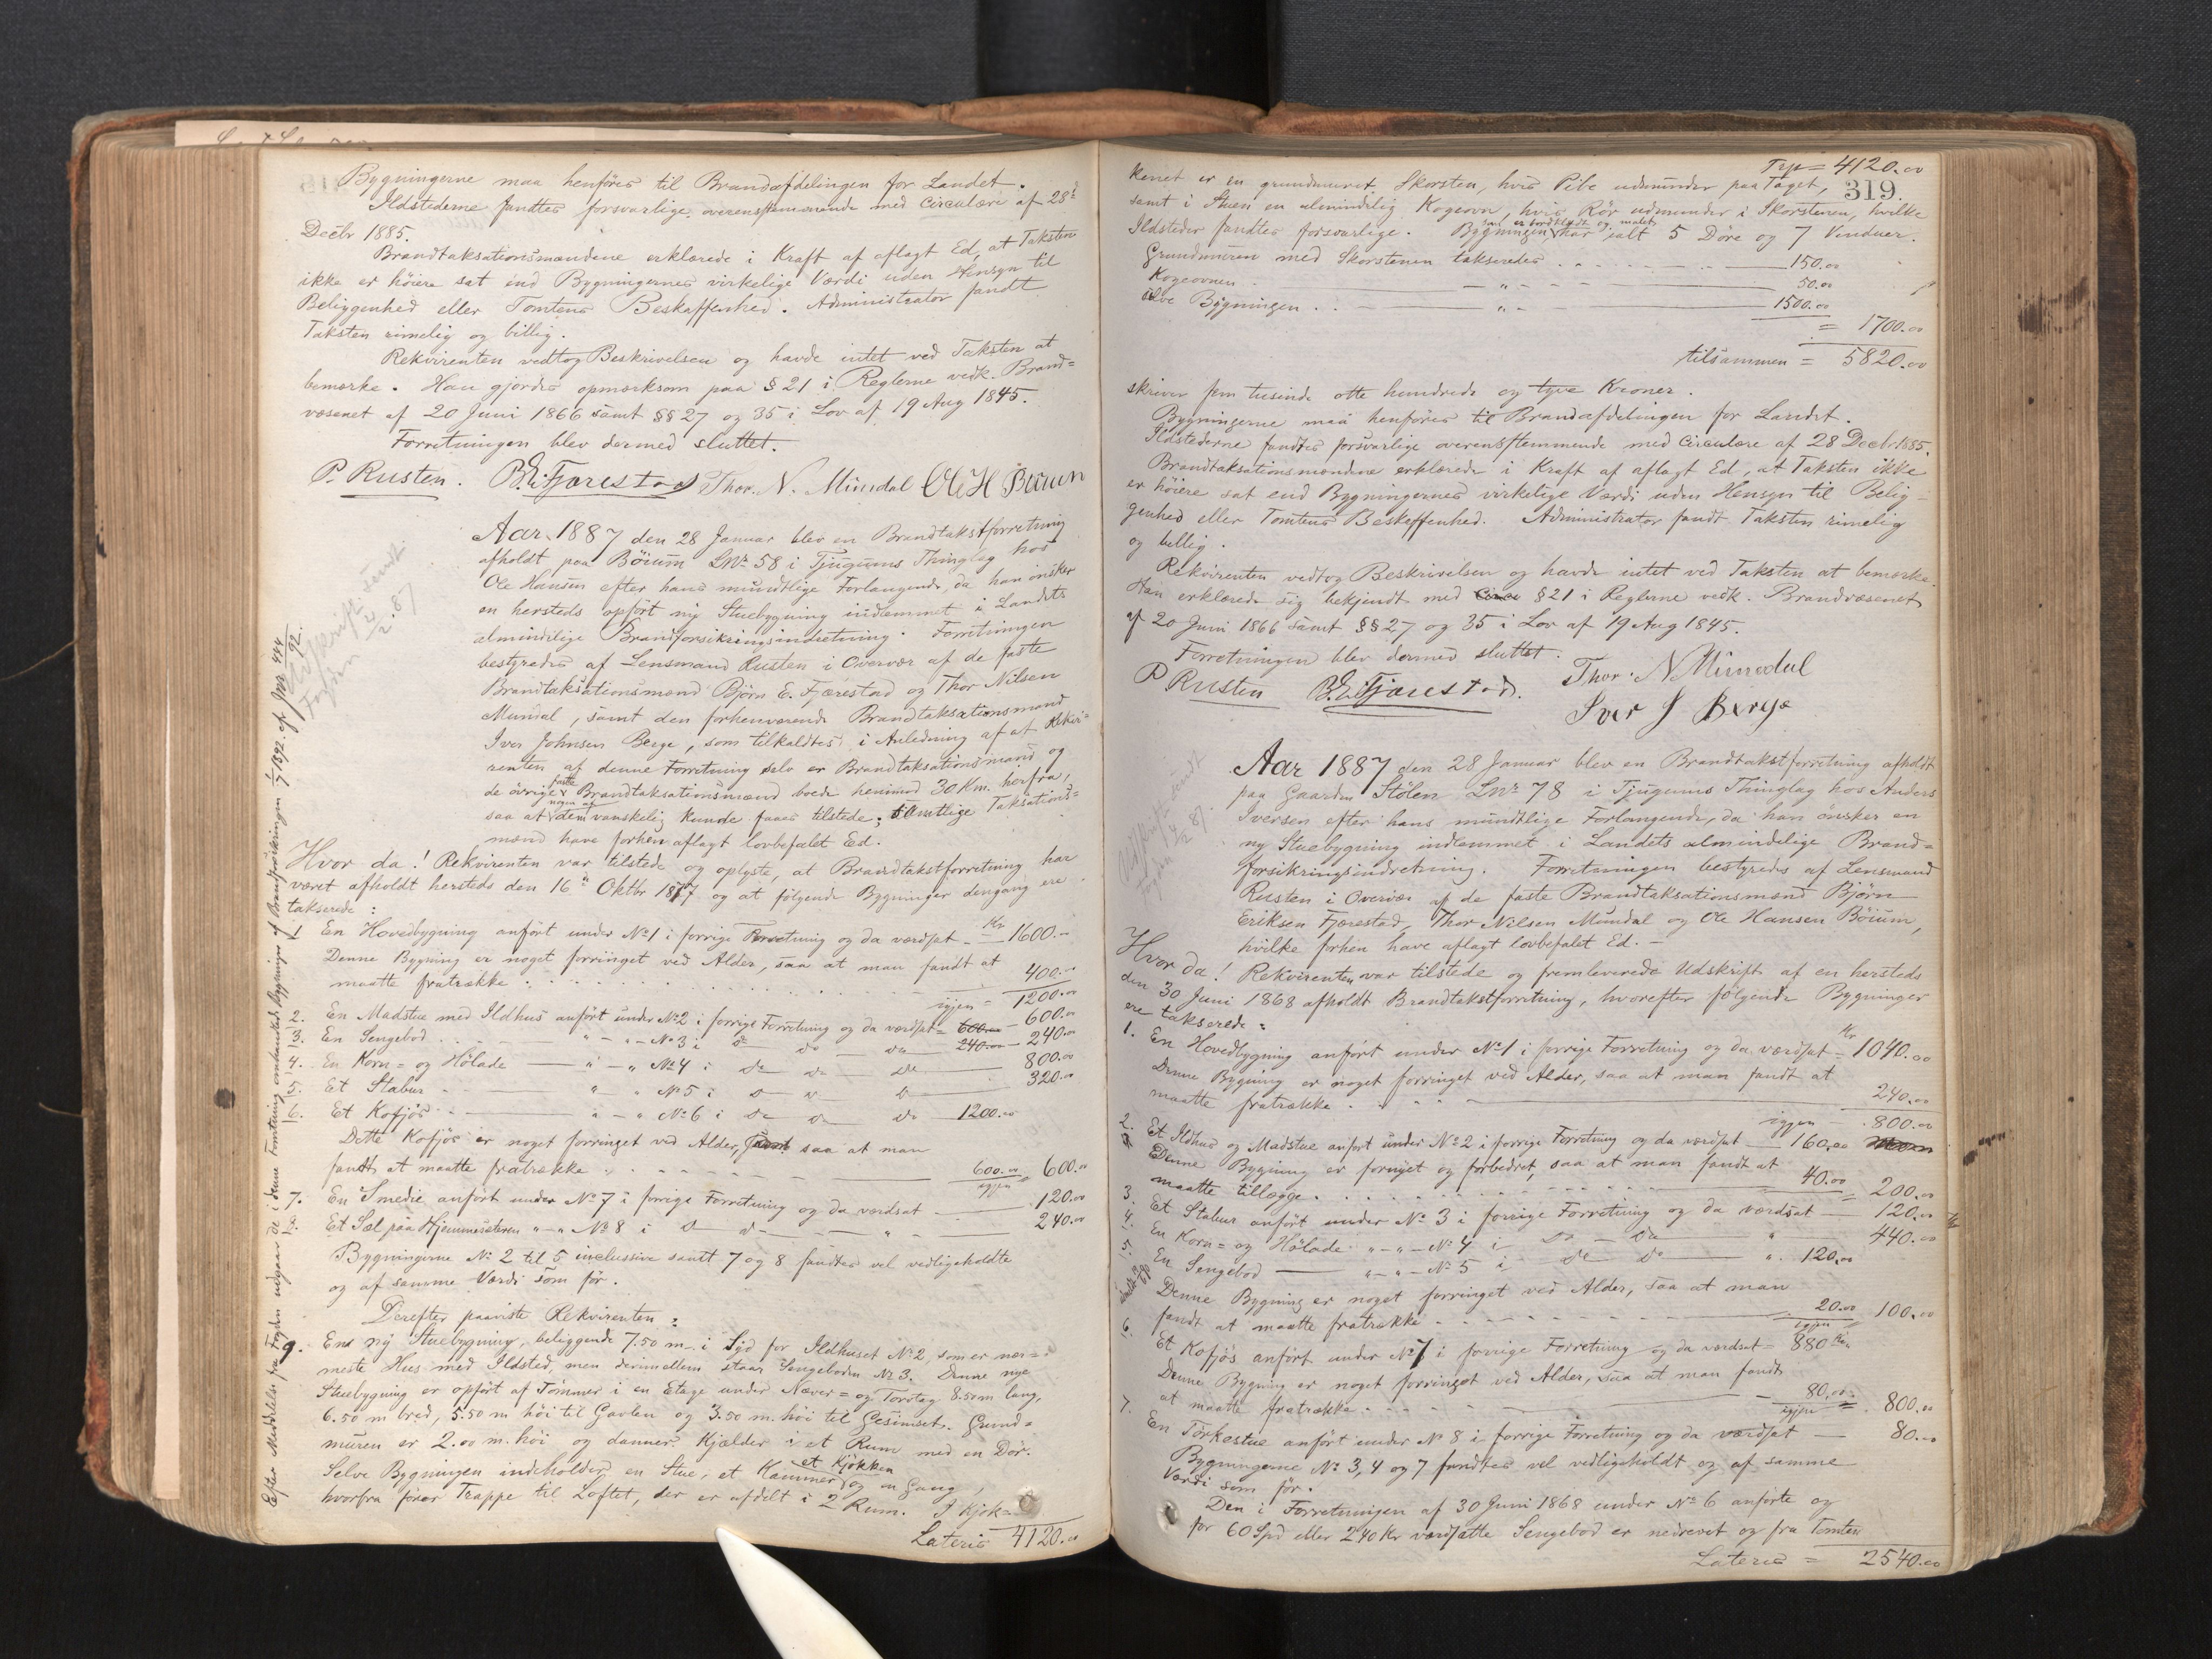 Bygningerne maa henføres til Brandafdelingen for Landet.
Ildstederne fandtes forsvarlige overensstemmende med Circulære af 28de
Decbr 1885.
Brandtaksationsmændene erklærede i Kraft af aflagt Ed, at Taksten
ikke er høiere sat end Bygningernes virkelige Værdi uden Hensyn til
Beliggenhed eller Tomtens Beskaffenhed. Administrator fandt
Taksten rimelig og billig.
Rekvirenten vedtog Beskrivelsen og havde intet ved Taksten at
bemærke. Han gjordes opmærksom paa § 21 i Reglerne vedk. Brand=
væsenet af 20 Juni 1866 samt §§ 27 og 35 i Lov af 19 Aug 1845.
Forretningen blev dermed sluttet.
P. Rusten. B. E. Fjærestad Thor. N. Mundal Ole H Bøium
Aar 1887 den 28 Januar blev en Brandtakstforretning
afholdt paa Bøium LNr 58 i Tjugums Thinglag hos
Ole Hansen efter hans mundtlige Forlangende, da han ønsker
en hersteds opført ny Stuebygning indlemmet i Landets
almindelige Brandforsikringsindretning. Forretningen
bestyredes af Lensmand Rusten i Overvær af de faste
Brandtaksationsmænd Bjørn E. Fjærestad og Thor Nilsen
Mundal, samt den forhenværende Brandtaksationsmand
Iver Johnsen Berge, som tilkaldtes i Anledning af at Rekvi=
renten af denne Forretning selv er Brandtaksationsmand og
de øvrige faste Brandtaksationsmænd boede henimod 30 Km. herfra,
saa at nogen af dem vanskelig kunde faaes tilstede; samtlige Taksations=
mænd have forhen aflagt lovbefalet Ed.
Hvor da! Rekvirenten var tilstede og oplyste, at Brandtakstforretning har
været afholdt hersteds den 16de Oktbr 1877 og at følgende Bygninger dengang ere
takserede:
1 En Hovedbygning anført under No 1 i forrige Forretning og da værdsat - Kr 1600.-
Denne Bygning er noget forringet ved Alder, saa at man fandt at
maatte fratrække . . . 400.-
igjen = 1200.00
2. En Madstue med Ildhus anført under No 2 i forrige Forretning og da værdsat = 600.00 - 600.00
3. En Sengebod . . " - " - No 3 i do do do 240.00 - 240.00
4. En Korn= og Hølade " - " No 4 i do do do 800.00
5. Et Stabur " " No 5 i do do do 320.00
6. Et Kofjøs " - " No 6 i do do do 1200.00
Dette Kofjøs er noget forringet ved Alder, saa at man
fandt at maatte fratrække . . 600.00 igjen = 600.00
7. En Smedie anført under No 7 i forrige Forretning og da værdsat 120.00
8. Et Sæl paa Hjemmestølen " - " No 8 i do do - " - 240.00
Bygningerne No 2 til 5 inclusive samt 7 og 8 fandtes vel vedligeholdte
og af samme Værdi som før.
Derefter paaviste Rekvirenten:
9. En ny Stuebygning, beliggende 7.50 m. i Syd for Ildhuset No 2, som er nær=
meste Hus med Ildsted, men derimellem staar Sengeboden No 3. Denne nye
Stuebygning er opført af Tømmer i en Etage under Næver= og Torvtag 8.50 m lang,
6.50 m bred, 5.50 m høi til Gavlen og 3.50 m. høi til Gesimset. Grund=
muren er 2.00 m. høi og danner Kjælder i et Rum med en Dør.
Selve Bygningen indeholder en Stue, et Kammer, et Kjøkken og en Gang,
hvorfra fører Trappe til Loftet, der er afdelt i 2 Rum. I Kjøk=
Lateris 4120.00
Udskrift sendt
Fogden 2/2. 87
Efter Meddelelse fra Fogden udgaar de i denne Forretning omhandlede Bygninger af Brandforsikringen 1/7 1892. cfr Jnr 444/92.
Trp = 4120.00
319.
kenet er en grundmuret Skorsten, hvis Pibe udmunder paa Taget,
samt i Stuen en almindelig Kogeovn, hvis Rør udmunder i Skorstenen, hvilke
Ildsteder fandtes forsvarlige. Bygningen, som er bordklædt og malet, har ialt 5 Døre og 7 Vinduer.
Grundmuren med Skorstenen takseredes . . . 150.00
Kogeovnen . . . - " - 50.00
selve Bygningen . . - " - 1500.00
= 1700.00
tilsammen = 5820.00
skriver fem tusinde otte hundrede og tyve Kroner.
Bygningerne maa henføres til Brandafdelingen for Landet.
Ildstederne fandtes forsvarlige overensstemmende med Circulære af 28 Decbr 1885.
Brandtaksationsmændene erklærede i Kraft af aflagt Ed, at Taksten ikke
er høiere sat end Bygningernes virkelige Værdi uden Hensyn til Belig-
genhed eller Tomtens Beskaffenhed. Administrator fandt Taksten rimelig
og billig.
Rekvirenten vedtog Beskrivelsen og havde intet ved Taksten at bemærke.
Han erklærede sig bekjendt med § 21 i Reglerne vedk. Brandvæsenet
af 20 Juni 1866 samt §§ 27 og 35 i Lov af 19 Aug 1845.
Forretningen blev dermed sluttet.
P Rusten B. E. Fjærestad. Thor. N Mundal
Iver J Berge
Aar 1887 den 28 Januar blev en Brandtakstforretning afholdt
paa Gaarden Stølen LNr 78 i Tjugums Thinglag hos Anders
Iversen efter hans mundtlige Forlangende, da han ønsker en
ny Stuebygning indlemmet i Landets almindelige Brand=
forsikringsindretning. Forretningen bestyredes af Lensmand
Rusten i Overvær af de faste Brandtaksationsmænd Bjørn
Eriksen Fjærestad, Thor Nilsen Mundal og Ole Hansen Bøium,
hvilke forhen have aflagt lovbefalet Ed. -
Udskrift sendt
Fogden 14/2 87.
Hvor da! Rekvirenten var tilstede og fremleverede Udskrift af en hersteds
den 30 Juni 1868 afholdt Brandtakstforretning, hvorefter følgende Bygninger
ere takserede:
1. En Hovedbygning anført under No 1 i forrige Forretning og da værdsat = Kr 1040.00
Denne Bygning er noget forringet ved Alder, saa at man fandt at
maatte fratrække . . . 240.00
igjen - 800.00
2. Et Ildhus og Madstue anført under No 2 i forrige Forretning og da værdsat - 160.00
Denne Bygning er fornyet og forbedret, saa at man fandt at
maatte tillægge . . . 40.00 = 200.00
3. Et Stabur anført under No 3 i forrige Forretning og da værdsat - 120.00
4. En Korn= og Hølade " - " - No 4 i do - do " 440.00
5. En Sengebod " - " - No 5 i do do " 120.00
Denne Bygning er noget forringet ved Alder, saa at man
fandt at maatte fratrække . . . 20.00 igjen = 100.00
6. Et Kofjøs anført under No 7 i forrige Forretning og da værdsat = 880 Kr.
Denne Bygning er noget forringet ved Alder, saa at man fandt
at maatte fratrække . . . 80.00 igjen = 800.00
7. En Tørkestue anført under No 8 i forrige Forretning og da værdsat - 80.00
Bygningerne No 3, 4 og 7 fandtes vel vedligeholdt og af samme
Værdi som før.
Den i Forretningen af 30 Juni 1868 under No 6 anførte og
for 60 Spd eller 240 Kr værdsatte Sengebod er nedrevet og fra Tomten
Lateris = 2540.00